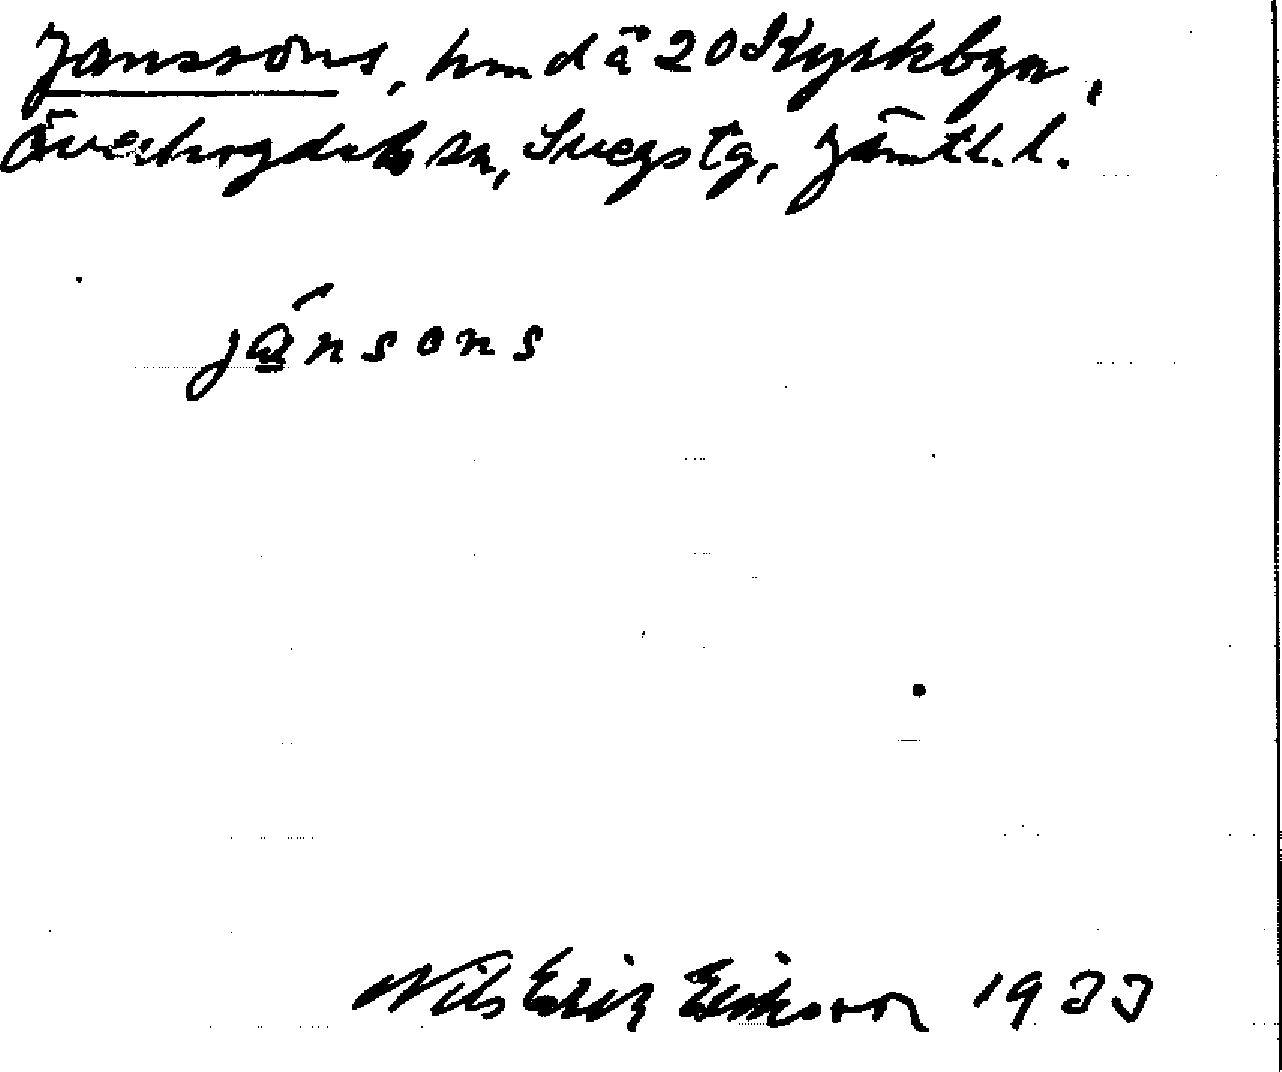 Janssons, hmd ä 20 Kyrkbyn,
Överhogdals sn, Svegs tg, Jämtl. l.
jánsons
Nils Erik Eriksson 1933